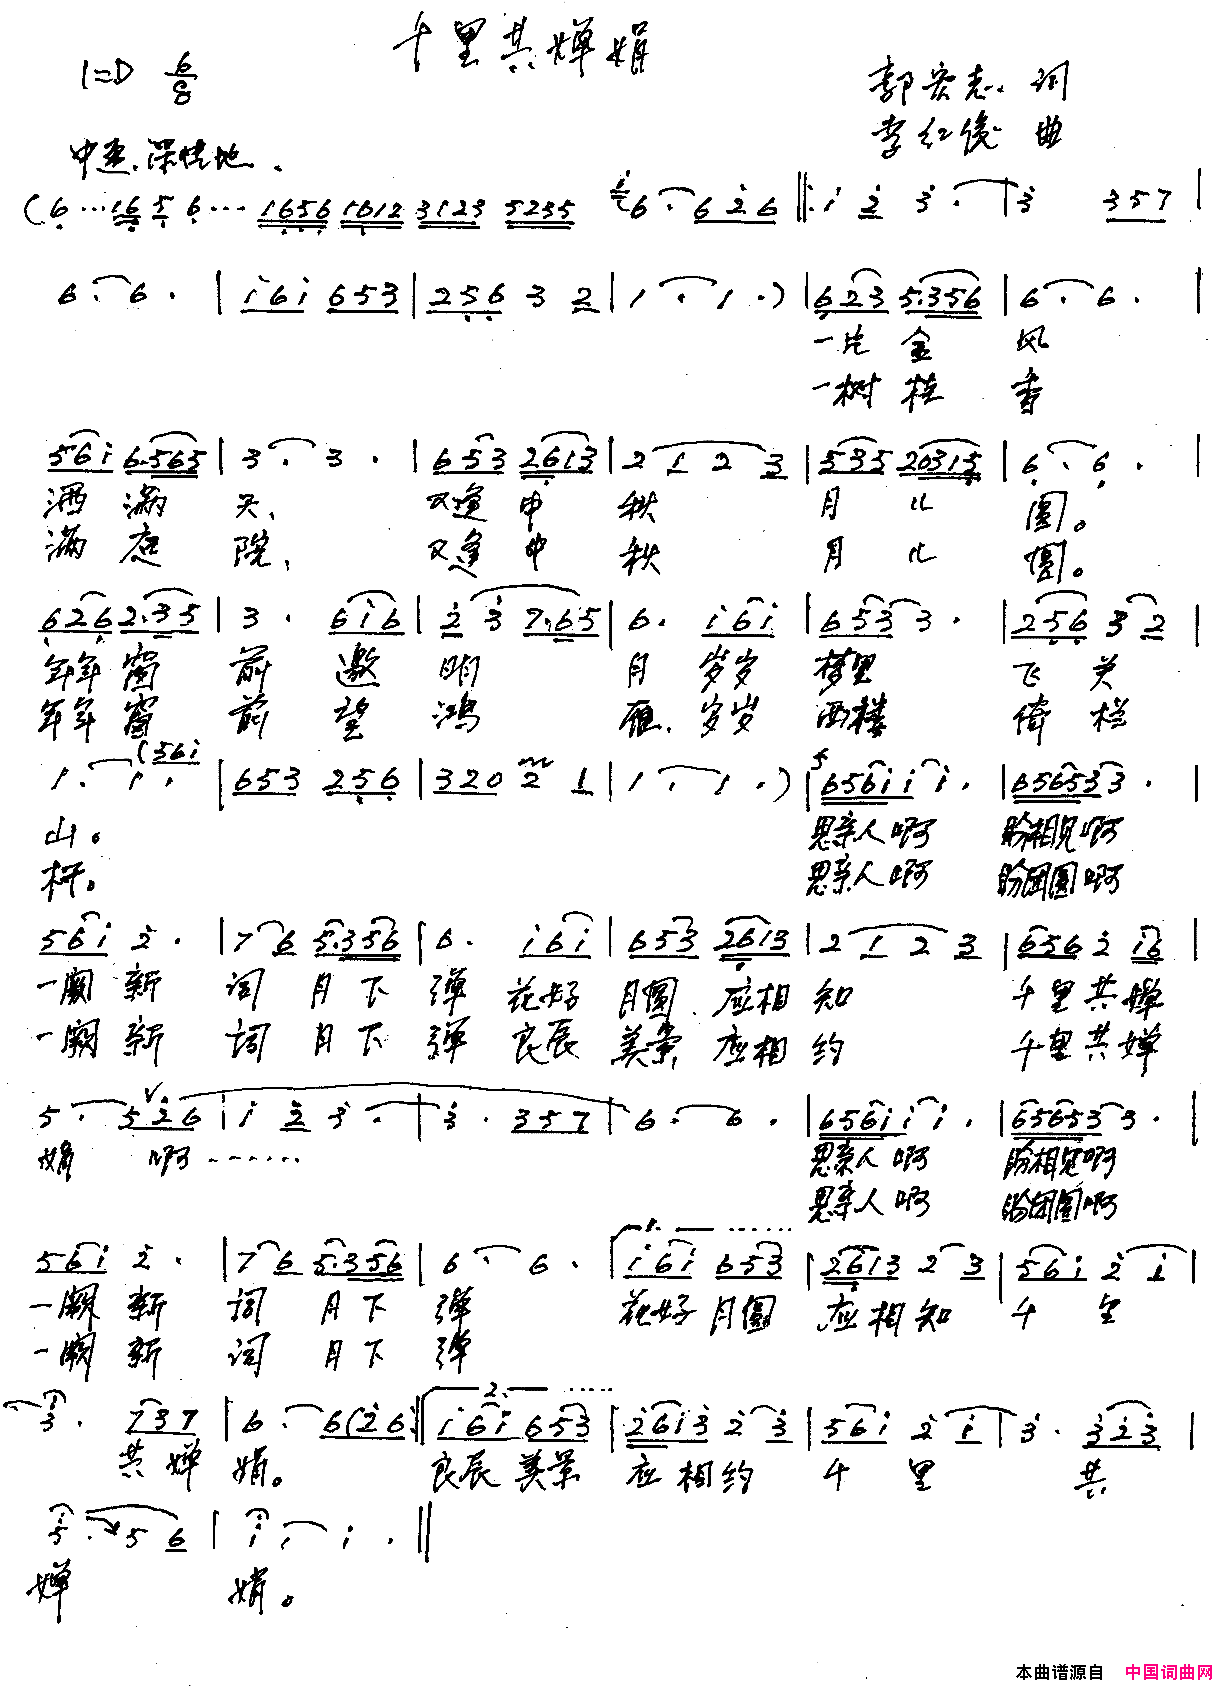 千里共婵娟
1=D 6/8
郭宏志 词
李红俊 曲
中速、深情地.
(6···16 5 6··· 1656 1612 3123 5235 i6· 626 ‖: i 2 3· | 3 357 |
6· 6· | i6i 653 | 256 3 2 | 1· 1·) | 623 5.356 | 6· 6· |
一片金 风
一树桂 香
56i 6.565 | 3· 3· | 653 2613 | 2 1 2 3 | 535 20315 | 6· 6· |
洒满 天、 又逢中 秋 月儿 圆。
满庭 院、 又逢中 秋 月儿 圆。
626 2.35 | 3· 6i6 | 2 3 7.65 | 6· i6i | 6533· | 256 3 2 |
年年窗 前邀 明 月 岁岁 梦里 飞关
年年窗 前望 鸿 雁、岁岁 西楼 倚栏
1· 1· (56i | 653 256 | 320 2 1 | 1· 1·) | f 656i i i· | 6565 3 3· |
山。 思亲人啊 盼相见啊
杆。 思亲人啊 盼团圆啊
56i 2· | 7 6 5.356 | 6· i6i | 653 2613 | 2 1 2 3 | 656 2 i6 |
一阙新 词月下 弹 花好 月圆、应相 知 千里共婵
一阙新 词月下 弹 良辰 美景、应相 约 千里共婵
5· 5 26 | i 2 3· | 3· 357 | 6· 6· | 656i i i· | 6565 3 3· |
娟 啊······ 思亲人啊 盼相见啊
思亲人啊 盼团圆啊
56i 2· | 7 6 5.356 | 6· 6· | 1. ······ i6i 653 | 2613 2 3 | 56i 2 i |
一阙新 词月下 弹 花好月圆 应相知 千里
一阙新 词月下 弹
3· 737 | 6· 6(26 :‖ 2. ······ i6i 653 | 26i3 2 3 | 56i 2 i | 3· 323 |
共婵 娟。 良辰美景 应相约 千里 共
5· 5 6 | i· i· ‖
婵 娟。
本曲谱源自 中国词曲网